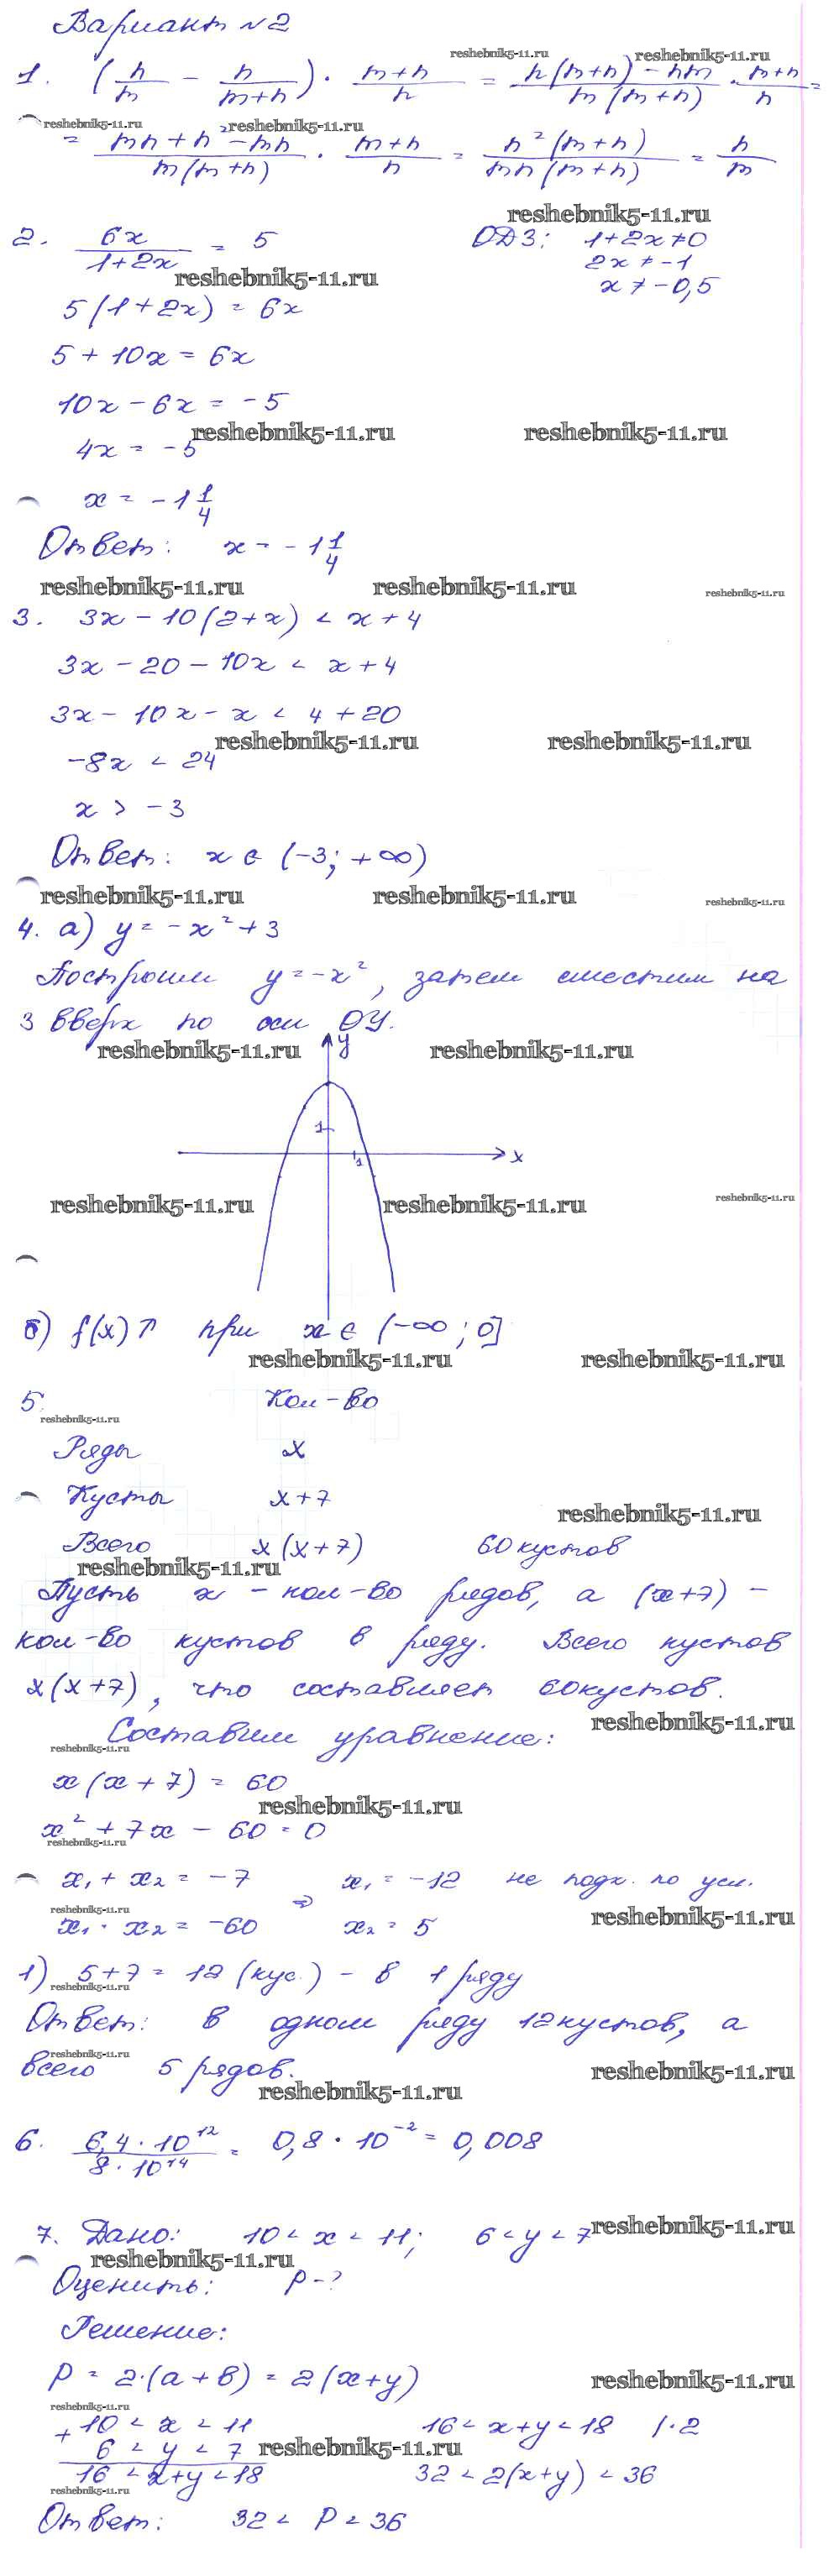 Вариант №2
reshebnik5-11.ru reshebnik5-11.ru
1. (n/m − n/(m+n)) · (m+n)/n = (n(m+n) − nm)/(m(m+n)) · (m+n)/n =
reshebnik5-11.ru reshebnik5-11.ru
= (mn + n² − mn)/(m(m+n)) · (m+n)/n = n²(m+n)/(mn(m+n)) = n/m
reshebnik5-11.ru
2. 6x/(1+2x) = 5 ОДЗ: 1+2x≠0
2x ≠ −1
reshebnik5-11.ru
x ≠ −0,5
5(1+2x) = 6x
5 + 10x = 6x
10x − 6x = −5
reshebnik5-11.ru reshebnik5-11.ru
4x = −5
x = −1 1/4
Ответ: x = −1 1/4
reshebnik5-11.ru reshebnik5-11.ru reshebnik5-11.ru
3. 3x − 10(2+x) < x+4
3x − 20 − 10x < x+4
3x − 10x − x < 4+20
reshebnik5-11.ru reshebnik5-11.ru
−8x < 24
x > −3
Ответ: x ∈ (−3; +∞)
reshebnik5-11.ru reshebnik5-11.ru reshebnik5-11.ru
4. а) y = −x² + 3
Построим y = −x², затем сместим на
3 вверх по оси OY.
reshebnik5-11.ru reshebnik5-11.ru
y
1
1
x
reshebnik5-11.ru reshebnik5-11.ru reshebnik5-11.ru
б) f(x)↑ при x ∈ (−∞; 0]
reshebnik5-11.ru reshebnik5-11.ru
5. Кол-во
reshebnik5-11.ru
Ряды x
Кусты x+7
reshebnik5-11.ru
Всего x(x+7) 60 кустов
reshebnik5-11.ru
Пусть x − кол-во рядов, а (x+7) −
кол-во кустов в ряду. Всего кустов
x(x+7), что составляет 60 кустов.
reshebnik5-11.ru
Составим уравнение:
reshebnik5-11.ru
x(x+7) = 60
reshebnik5-11.ru
x² + 7x − 60 = 0
reshebnik5-11.ru
x₁ + x₂ = −7 ⇒ x₁ = −12 не подх. по усл.
reshebnik5-11.ru reshebnik5-11.ru
x₁ · x₂ = −60 x₂ = 5
1) 5+7 = 12 (кус.) − в 1 ряду
reshebnik5-11.ru
Ответ: в одном ряду 12 кустов, а
reshebnik5-11.ru
всего 5 рядов.
reshebnik5-11.ru
reshebnik5-11.ru
6. (6,4 · 10¹²)/(8 · 10¹⁴) = 0,8 · 10⁻² = 0,008
7. Дано: 10 < x < 11; 6 < y < 7
reshebnik5-11.ru
reshebnik5-11.ru
Оценить: P − ?
Решение:
P = 2·(a+b) = 2(x+y)
reshebnik5-11.ru
reshebnik5-11.ru
+ 10 < x < 11 16 < x+y < 18 | · 2
6 < y < 7
reshebnik5-11.ru
16 < x+y < 18 32 < 2(x+y) < 36
reshebnik5-11.ru
Ответ: 32 < P < 36